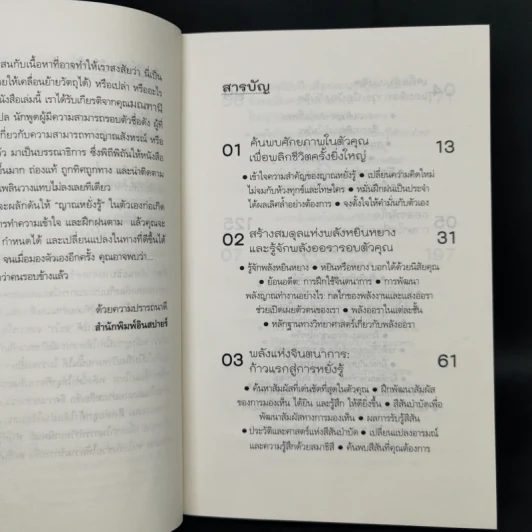 สนกับเนื้อหาที่อาจทำให้เราสงสัยว่า นี่เป็น
ยให้เคลื่อนย้ายวัตถุได้) หรือเปล่า หรืออะไร
นังสือเล่มนี้ เราได้รับเกียรติจากคุณมณฑานี
ปล นักพูดผู้มีความสามารถรอบตัวชื่อดัง ผู้ที่
เกี่ยวกับความสามารถทางญาณสังหรณ์ หรือ
ว มาเป็นบรรณาธิการ ซึ่งพิถีพิถันให้หนังสือ
ขึ้นมาก ถ่องแท้ ถูกทิศถูกทาง และน่าติดตาม
เพลินวางแทบไม่ลงเลยทีเดียว
จะผลักดันให้ "ญาณหยั่งรู้" ในตัวเองก่อเกิด
การทำความเข้าใจ และฝึกฝนตาม แล้วคุณจะ
กำหนดได้ และเปลี่ยนแปลงในทางที่ดีขึ้นได้
จนเมื่อมองตัวเองอีกครั้ง คุณอาจพบว่า...
กว่าคนรอบข้างแล้ว
ด้วยความปรารถนาดี
สำนักพิมพ์อินสปายร์
สารบัญ
01 ค้นพบศักยภาพในตัวคุณ 13
เพื่อพลิกชีวิตครั้งยิ่งใหญ่
• เข้าใจความสำคัญของญาณหยั่งรู้ • เปลี่ยนความคิดใหม่
ไม่จมกับห้วงทุกข์และโทษใคร • หมั่นฝึกฝนเป็นประจำ
ได้ผลเลิศล้ำอย่างต้องการ • จงตั้งใจให้คำมั่นกับตัวเอง
02 สร้างสมดุลแห่งพลังหยินหยาง 31
และรู้จักพลังออรารอบตัวคุณ
• รู้จักพลังหยินหยาง • หยินหรือหยาง บอกได้ด้วยนิสัยคุณ
• ย้อนอดีต: การฝึกใช้จินตนาการ • การพัฒนา
พลังญาณทำงานอย่างไร: กลไกของพลังงานและแสงออรา
ช่วยเปิดเผยตัวตนของเรา • พลังออราในแต่ละชั้น
• หลักฐานทางวิทยาศาสตร์เกี่ยวกับพลังออรา
03 พลังแห่งจินตนาการ: 61
ก้าวแรกสู่การหยั่งรู้
• ค้นหาสัมผัสที่เด่นชัดที่สุดในตัวคุณ • ฝึกพัฒนาสัมผัส
ของการมองเห็น ได้ยิน และรู้สึก ให้ดียิ่งขึ้น • สีสันบำบัดเพื่อ
พัฒนาสัมผัสทางการมองเห็น • ผลการรับรู้สีสัน
• ประวัติและศาสตร์แห่งสีสันบำบัด • เปลี่ยนแปลงอารมณ์
และความรู้สึกด้วยสมาธิสี • ค้นพบสีสันที่คุณต้องการ